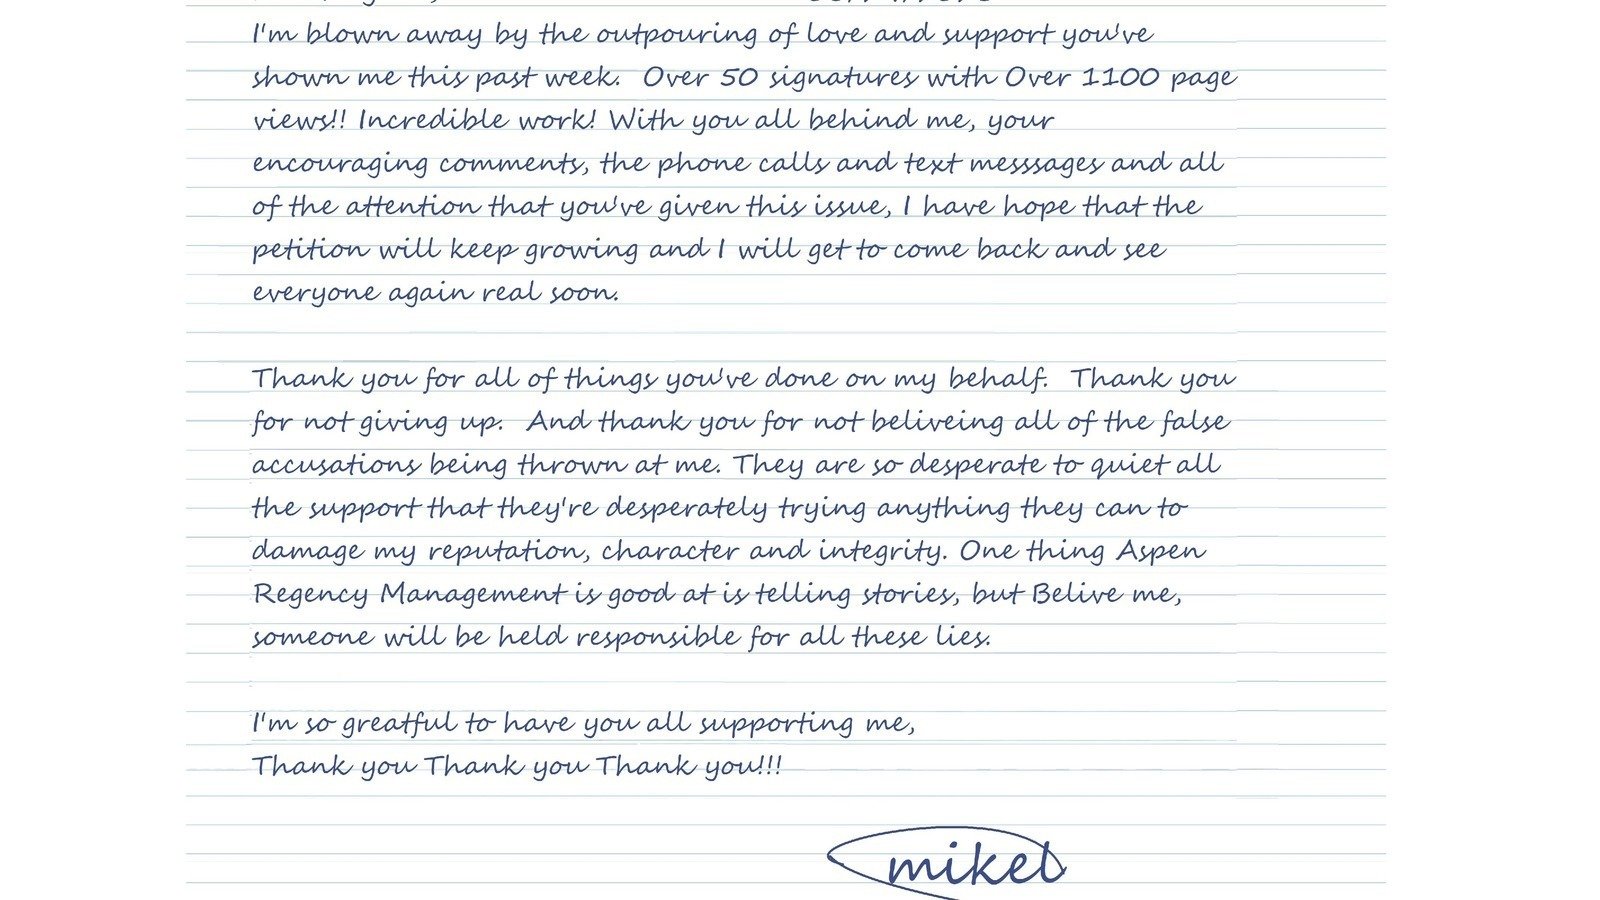 I'm blown away by the outpouring of love and support you've
shown me this past week. Over 50 signatures with Over 1100 page
views!! Incredible work! With you all behind me, your
encouraging comments, the phone calls and text messsages and all
of the attention that you've given this issue, I have hope that the
petition will keep growing and I will get to come back and see
everyone again real soon.
Thank you for all of things you've done on my behalf. Thank you
for not giving up. And thank you for not beliveing all of the false
accusations being thrown at me. They are so desperate to quiet all
the support that they're desperately trying anything they can to
damage my reputation, character and integrity. One thing Aspen
Regency Management is good at is telling stories, but Belive me,
someone will be held responsible for all these lies.
I'm so greatful to have you all supporting me,
Thank you Thank you Thank you!!!
mikel